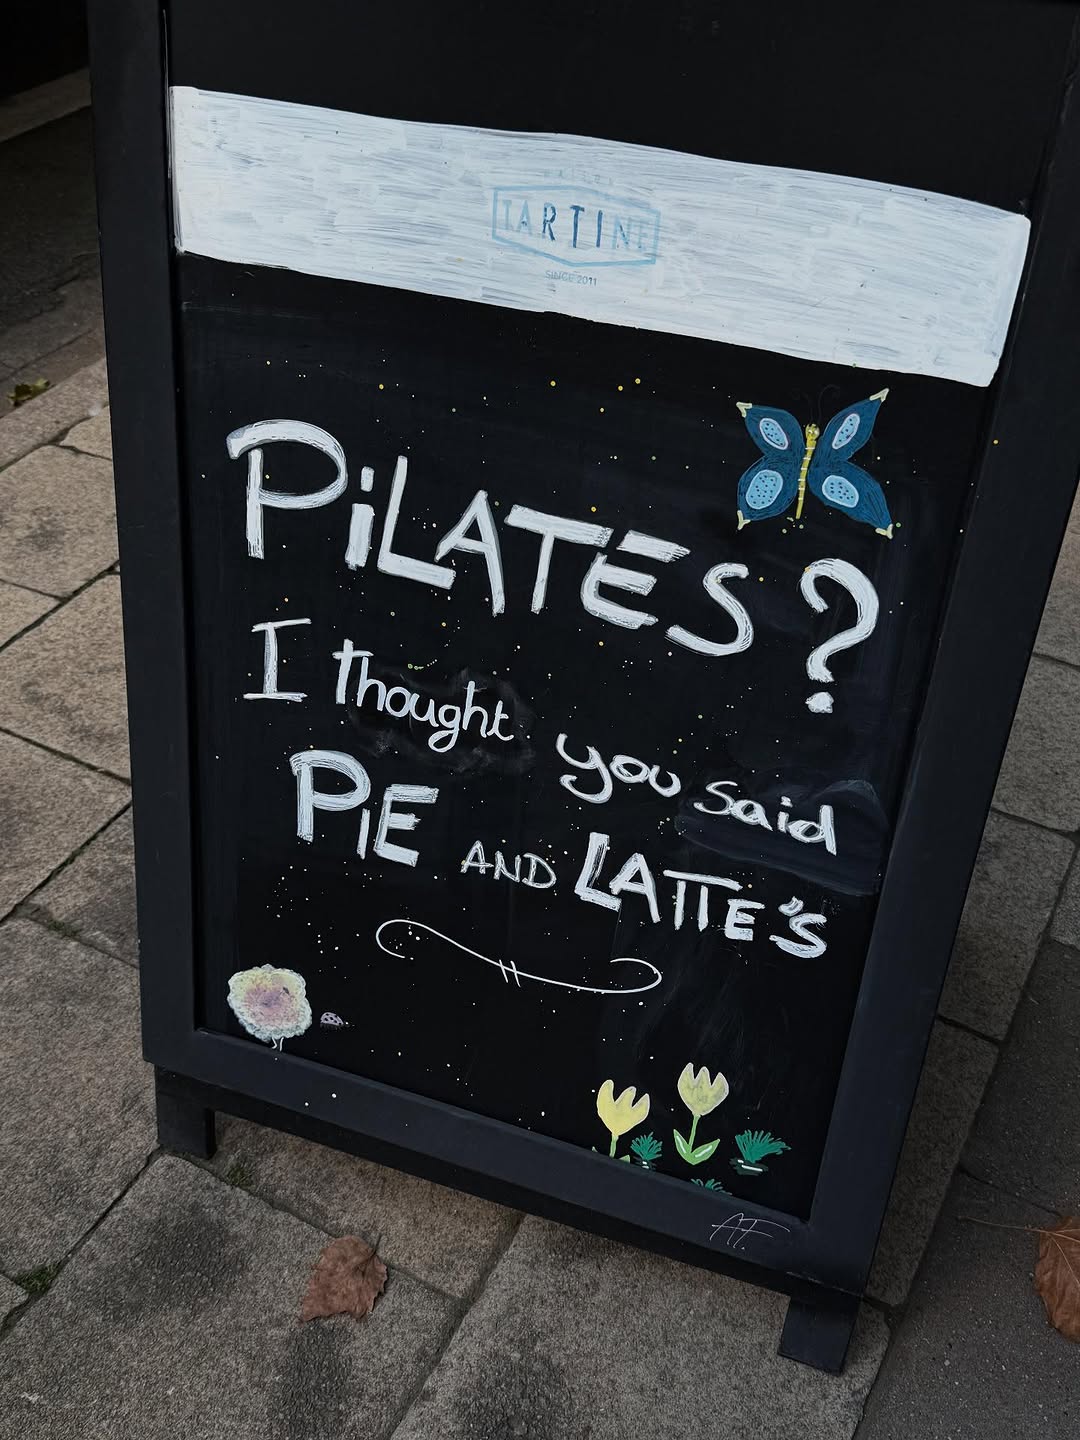 TARTINE
SINCE 2011
PiLATES?
I thought you said
PIE AND LATTE'S
A.F